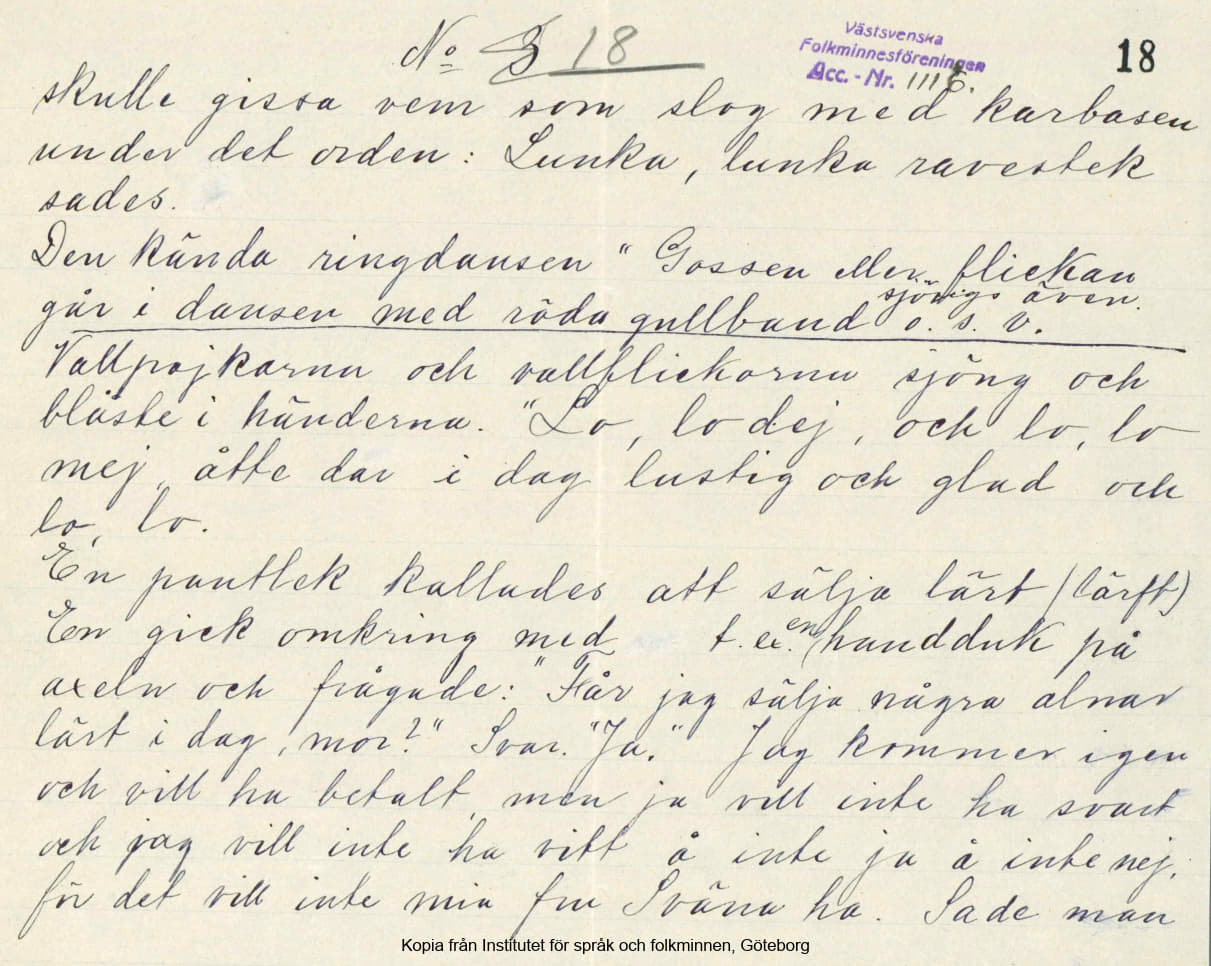 No 18
Västsvenska
Folkminnesföreningen
Acc.-Nr. 1118.
18
skulle gissa vem som slog med karbasen
under det orden: Lunka, lunka ravestek
sades.
Den kända ringdansen "Gossen eller flickan
sjöngs även.
går i dansen med röda gullband o. s. v.
Vallpojkarna och vallflickorna sjöng och
blåste i händerna. "Lo, lo dej, och lo, lo
mej, åtte dar i dag lustig och glad och
lo, lo.
En pantlek kallades att sälja lärt (lärft)
En gick omkring med t. ex. en handduk på
axeln och frågade: "Får jag sälja några alnar
lärt i dag, mor?" Svar. "Ja." Jag kommer igen
och vill ha betalt, men ja vill inte ha svart
och jag vill inte ha vitt å inte ja å inte nej,
för det vill inte mia fru Sväna ha. Sade man
Kopia från Institutet för språk och folkminnen, Göteborg